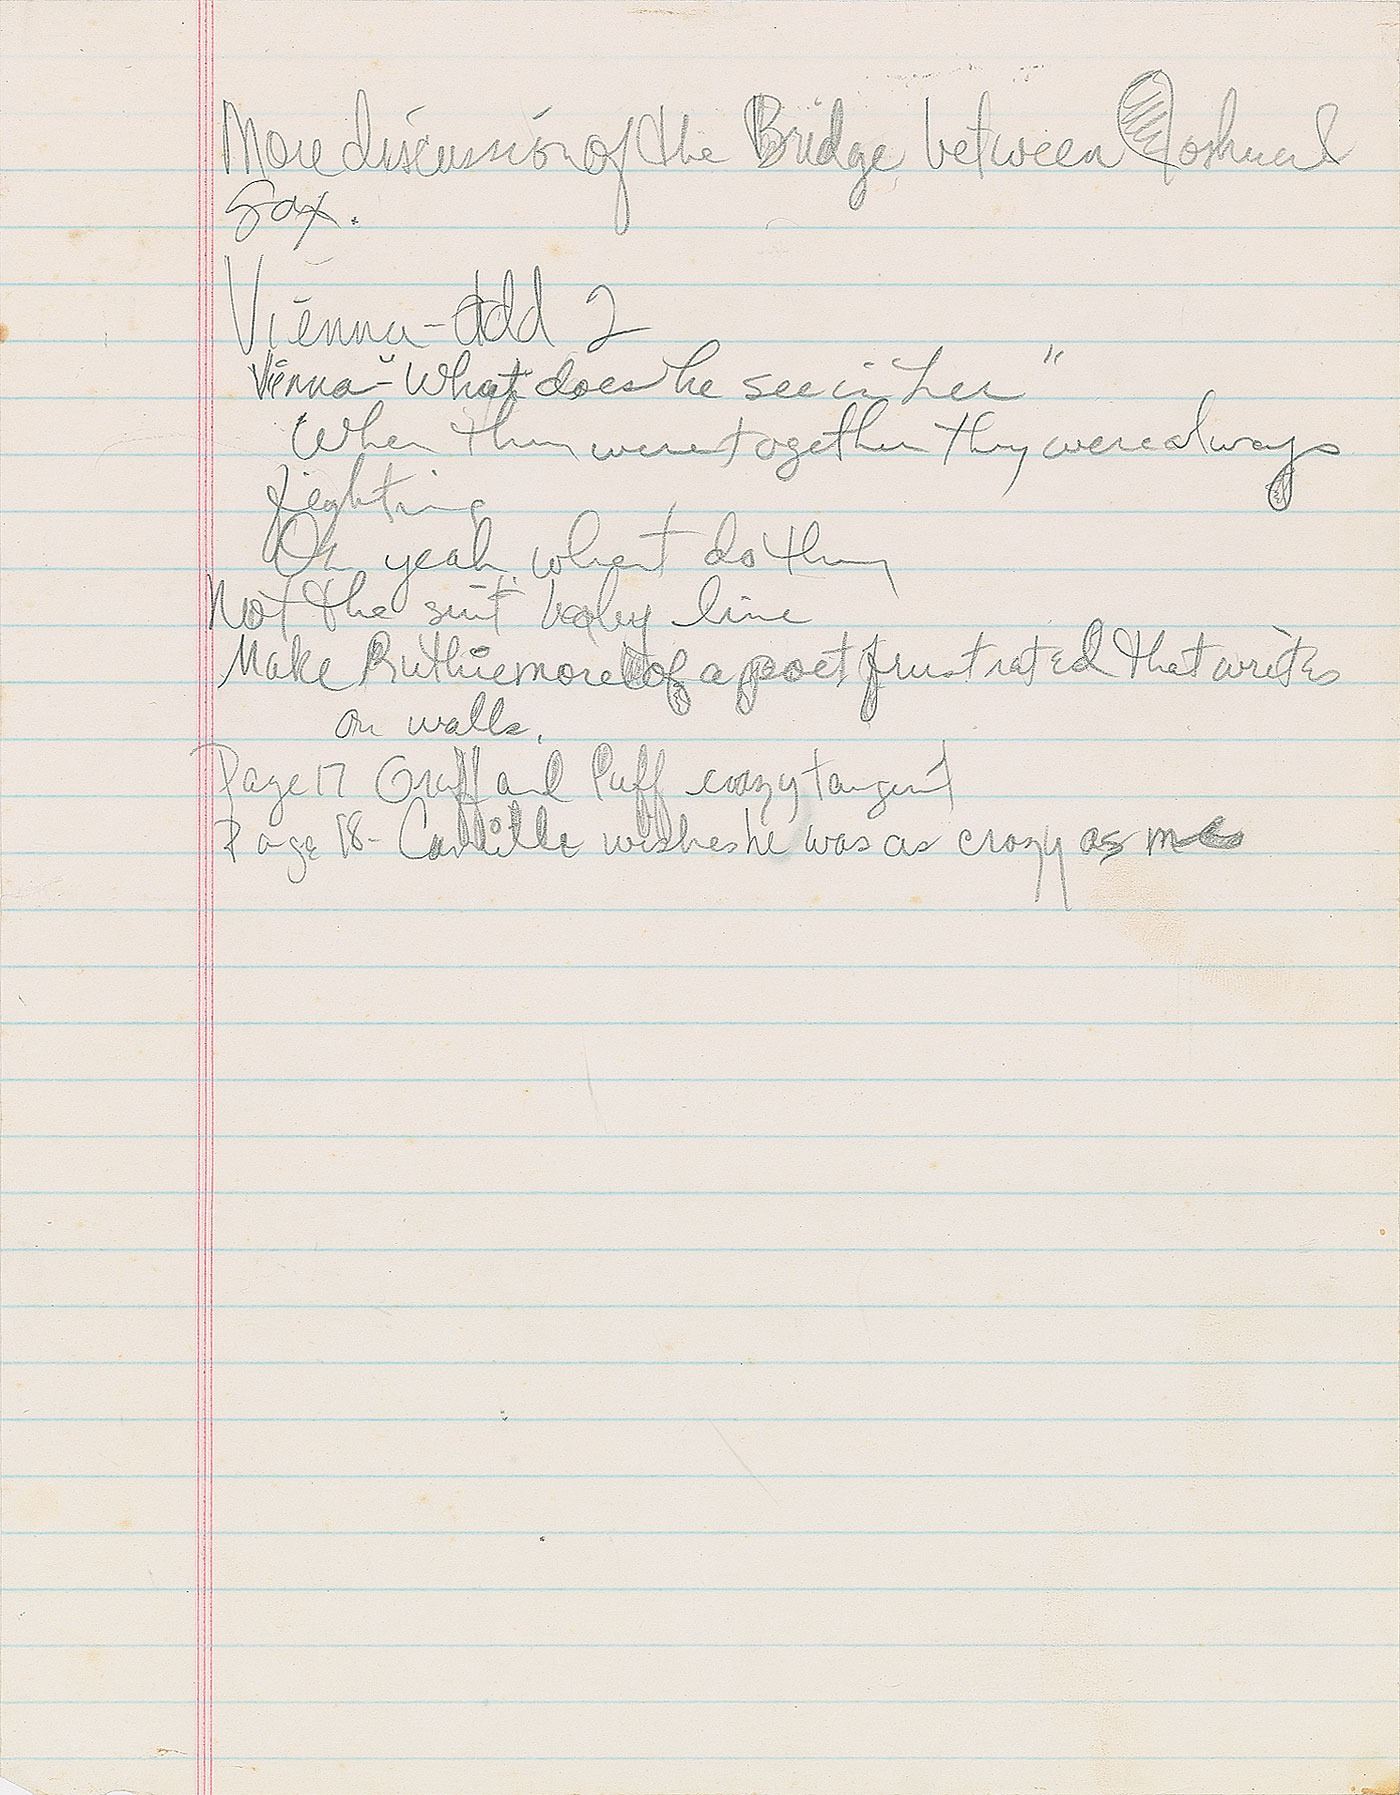 More discussion of the Bridge, between Joshua &
Sax.
Vienna - Add 2
Vienna - "What does he see in her"
When they were together they were always
fighting
Oh yeah what do they
Not the suit baby line
Make Ruthie more of a poet frustrated that writes
on walls.
Page 17 Gruff and Puff crazy tangent
Page 18 - Camille wishes he was as crazy as me